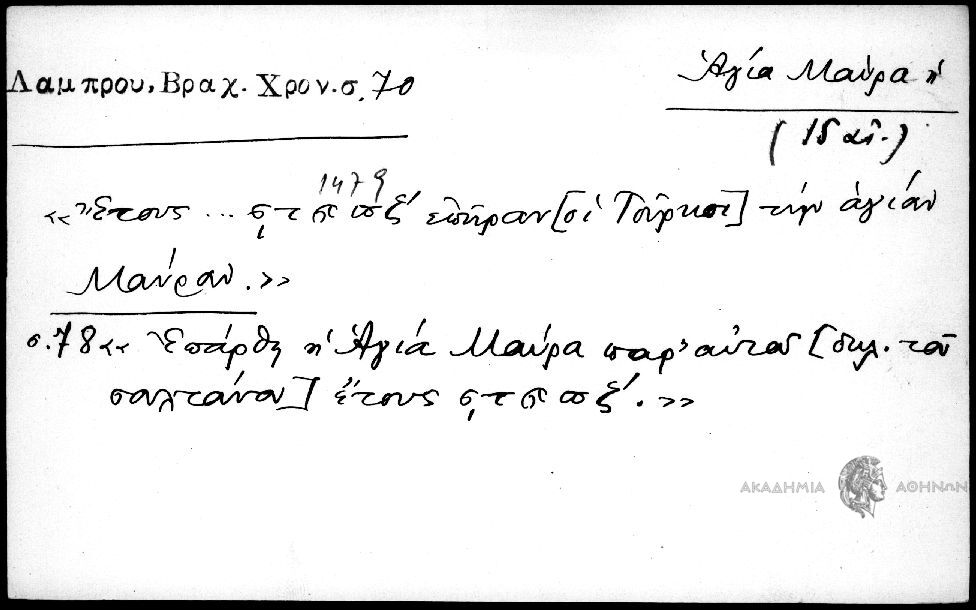 Λαμπρου, Βραχ. Χρον. σ. 70
Ἁγία Μαύρα ἡ
(15 αἰ.)
1479
«Ἔτους ... ͵ςϡπζ΄ ἐπῆραν [οἱ Τοῦρκοι] τὴν ἁγίαν
Μαύραν.»
σ. 78 «Ἐπάρθη ἡ Ἁγία Μαύρα παρ' αὐτοῦ [δηλ. τοῦ
σουλτάνου] ἔτους ͵ςϡπζ΄.»
ΑΚΑΔΗΜΙΑ ΑΘΗΝΩΝ